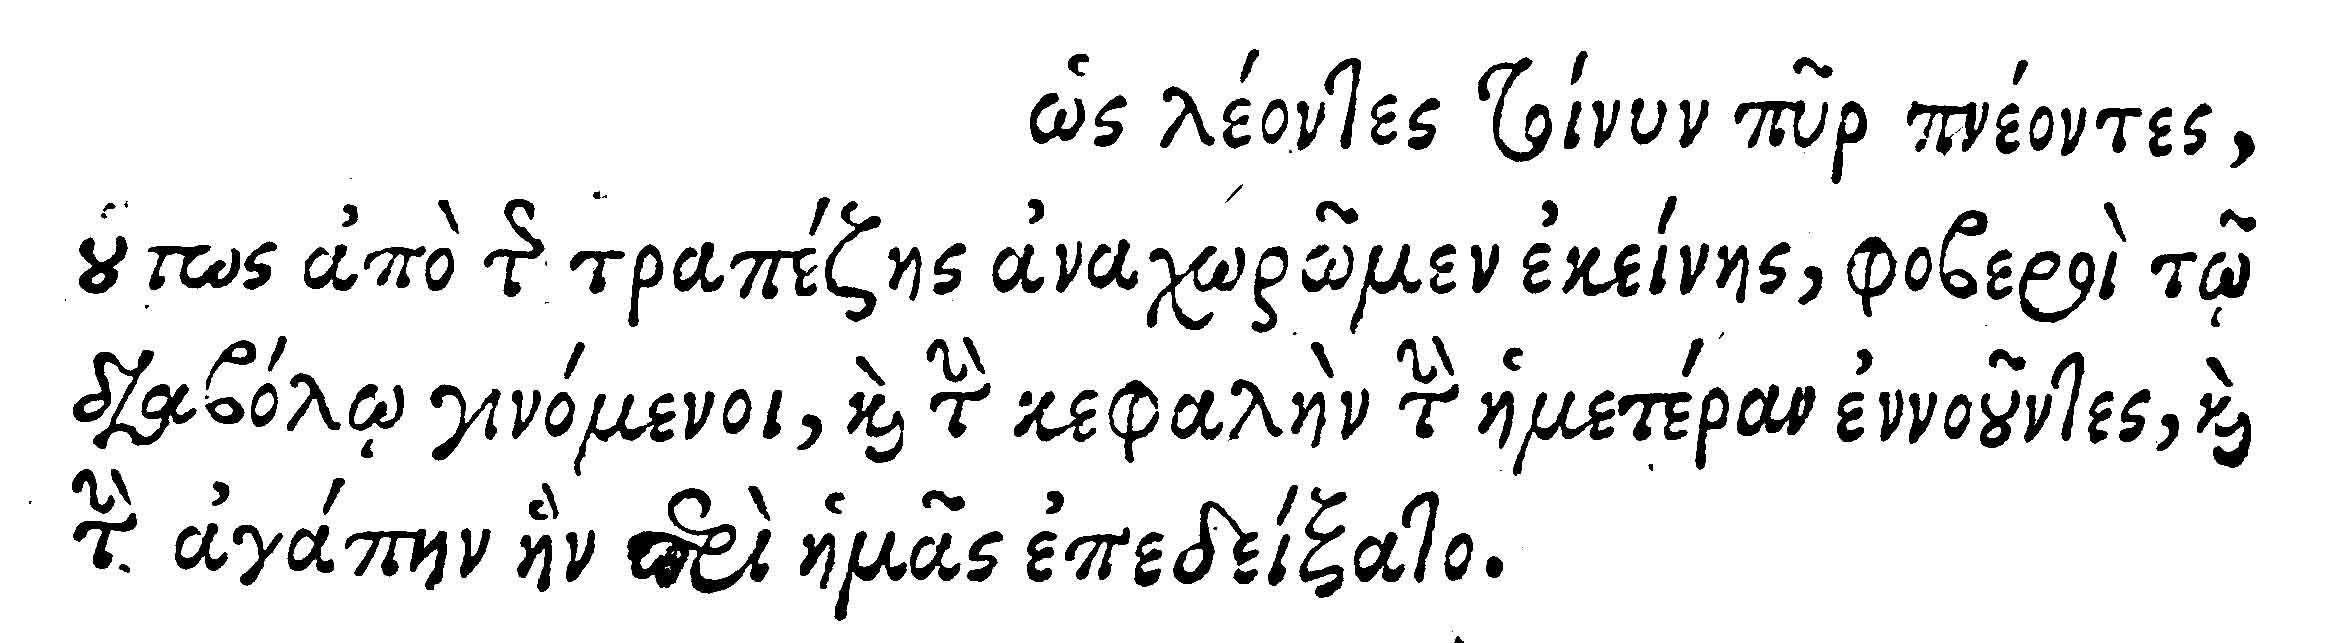 ὡς λέοντες τοίνυν πῦρ πνέοντες,
οὕτως ἀπὸ τῆς τραπέζης ἀναχωρῶμεν ἐκείνης, φοβεροὶ τῷ
διαβόλῳ γινόμενοι, καὶ τὴν κεφαλὴν τὴν ἡμετέραν ἐννοοῦντες, καὶ
τὴν ἀγάπην ἣν περὶ ἡμᾶς ἐπεδείξατο.